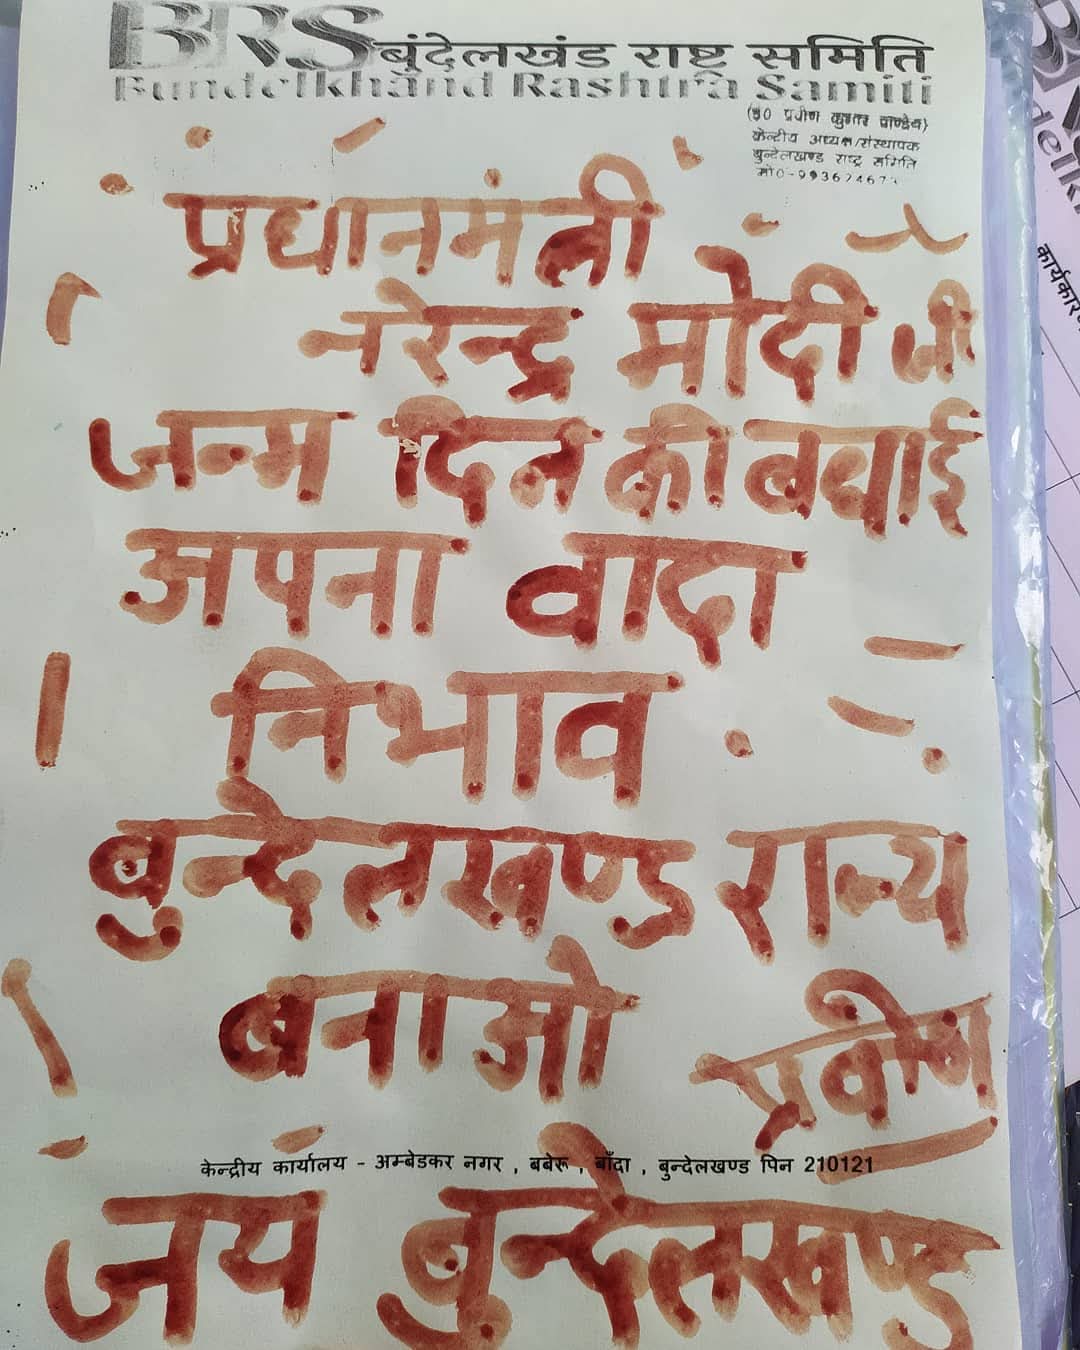 BRS बुंदेलखंड राष्ट्र समिति
Bundelkhand Rashtra Samiti
केन्द्रीय अध्यक्ष/संस्थापक
बुन्देलखण्ड राष्ट्र समिति
प्रधानमंत्री
नरेन्द्र मोदी जी
जन्म दिन की बधाई
अपना वादा
निभाव
बुन्देलखण्ड राज्य
बनाओ
प्रवीण
केन्द्रीय कार्यालय - अम्बेडकर नगर , बबेरू , बाँदा , बुन्देलखण्ड पिन 210121
जय बुन्देलखण्ड